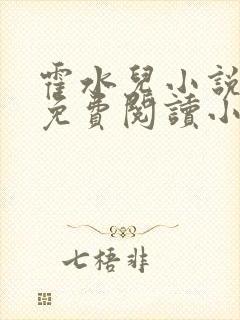 霍水兒小說
免費閱讀小
七梧非